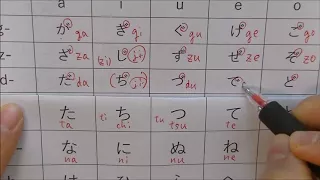 a i u e o
g- が ga ぎ gi ぐ gu げ ge ご
z- ざ za (zi) じ (ji) ず zu ぜ ze ぞ zo
d- だ da (ぢ ji) づ du で ど
た ta ti ち chi tu つ tsu て te
な na に ni ぬ nu ね ne